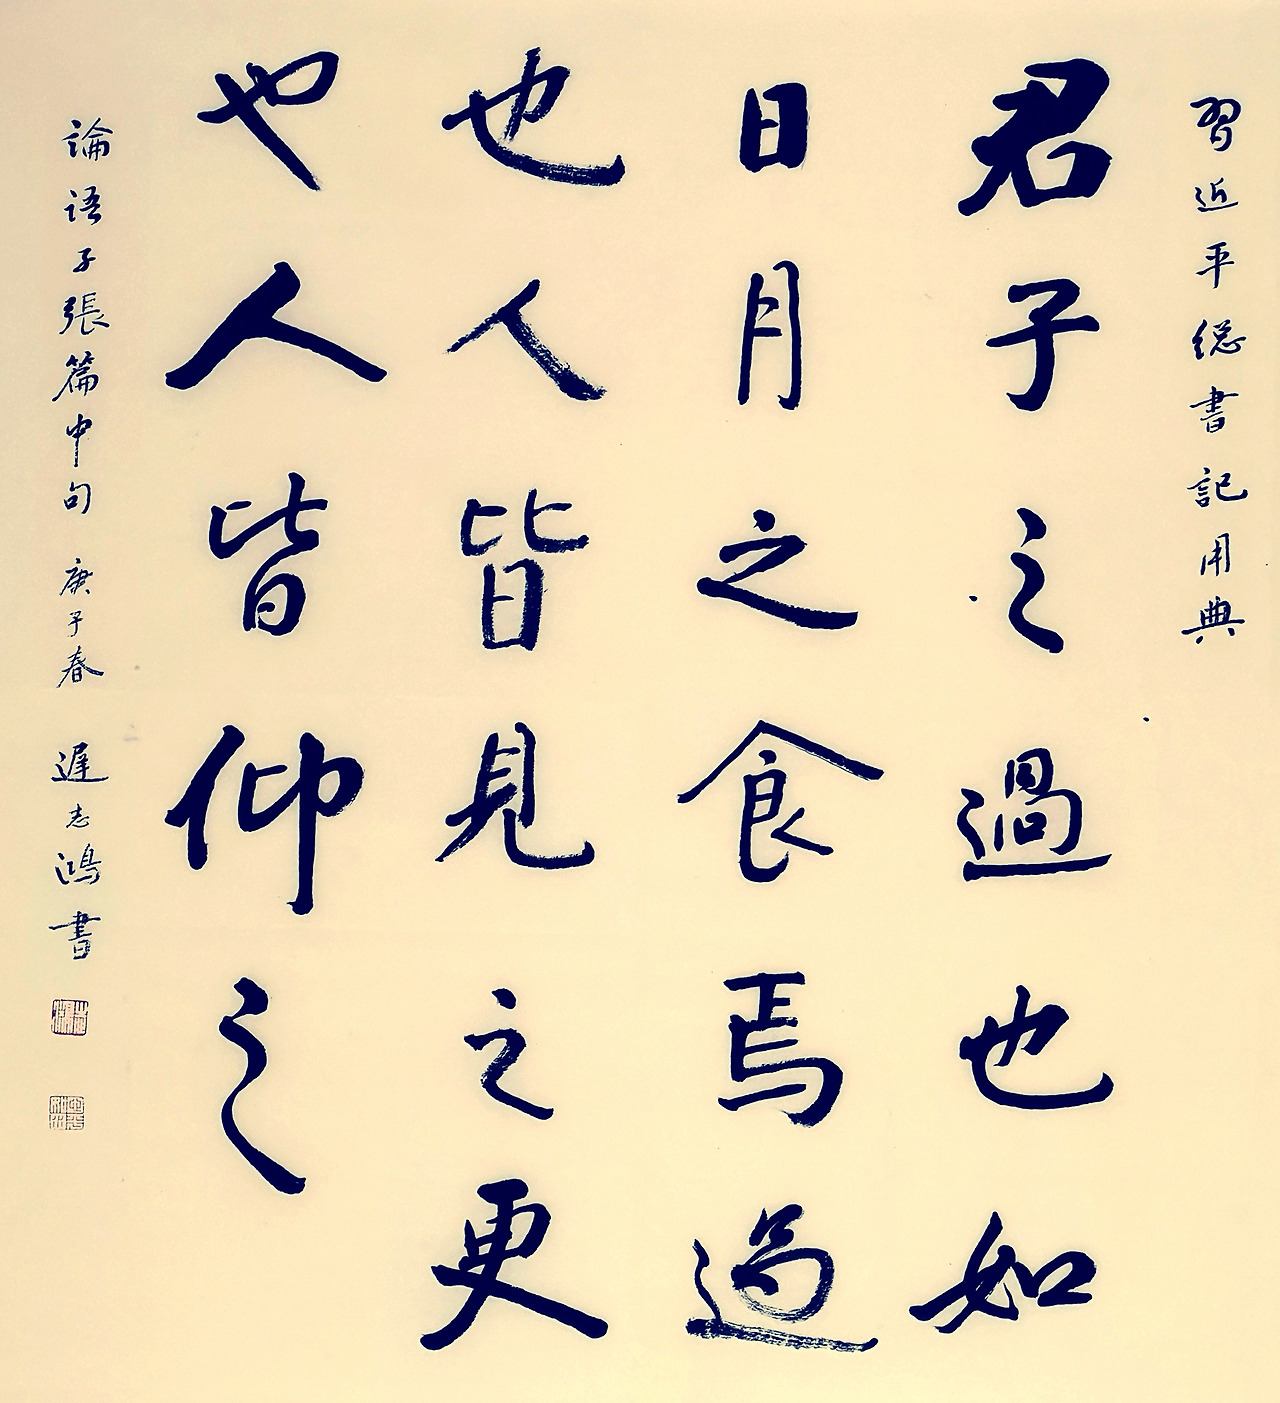 習近平総書記用典
君子之過也如
日月之食焉過
也人皆見之更
也人皆仰之
論語子張篇中句 庚子春 遲志鴻書